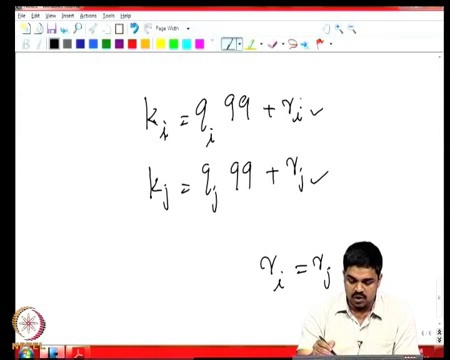 File Edit View Insert Actions Tools Help
Page Width
B
k_i = q_i 99 + r_i ✓
k_j = q_j 99 + r_j ✓
r_i = r_j
NPTEL